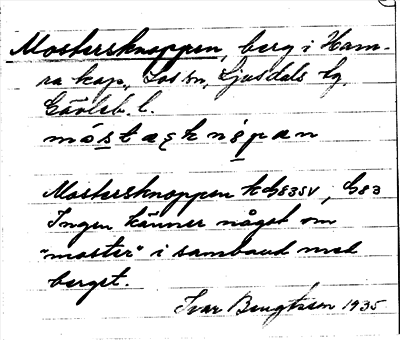 Mostersknoppen, berg i Ham-
ra kap., Los sn, Ljusdals tg,
Gävleb. l.
móstaʂknòpan
Mostersknoppen hG83SV, G83
Ingen känner något om
"moster" i samband med
berget.
Ivar Bengtsson 1935